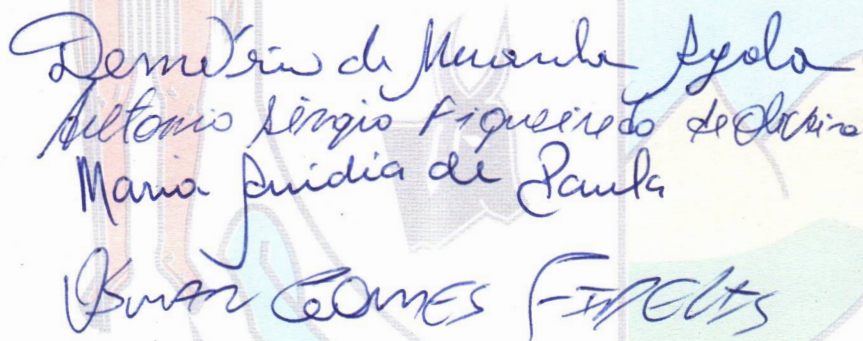 Demétrio de Miranda Ayala
Antonio Sérgio Figueiredo de Oliveira
Maria de Paula
Osmar GOMES FIDELIS